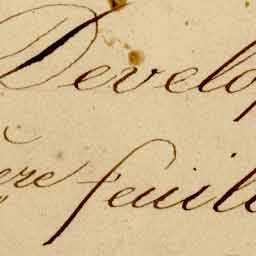 Develop
ere feuill